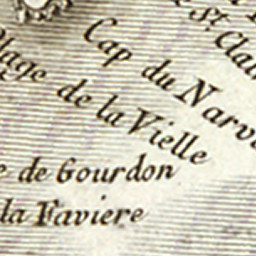 St. Clai
Cap du Narv
lage de la Vielle
e de Gourdon
la Faviere